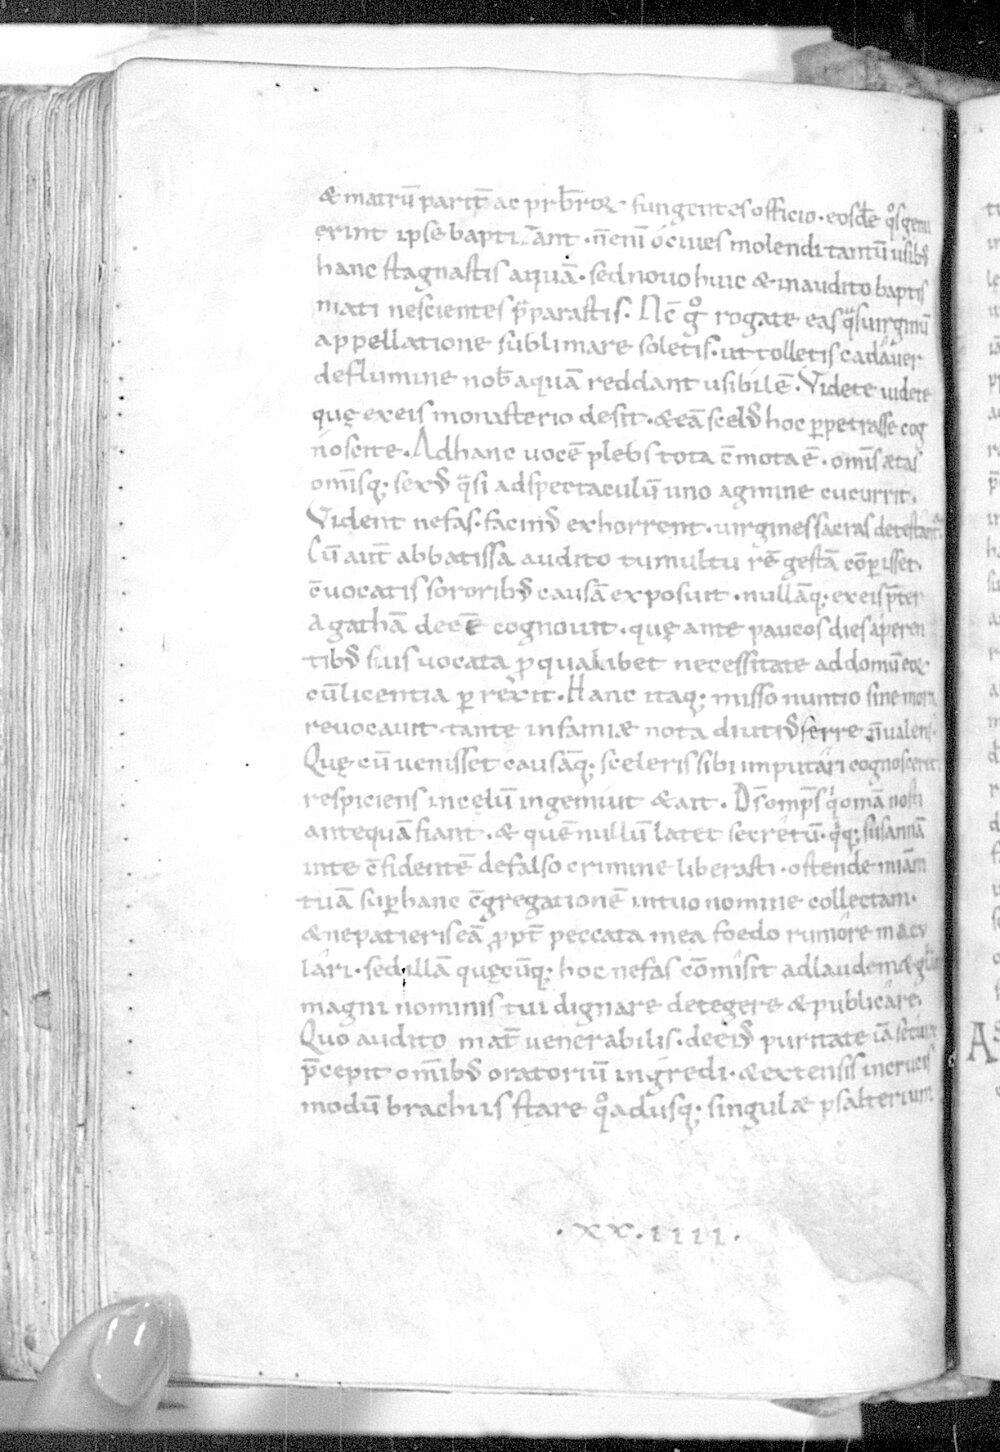 & matrū parit̄ ac prb̄roꝝ fungentes officio · eosdē q̊s genu
erint ipsę baptizant · n̄ enī ó ciues molendi tantū usibꝰ
hanc stagnastis aquā · sed nouo huic & inaudito baptis
mati nescientes p̄parastis · Nc̄ g̊ rogate eas q̄s uirginū
appellatione sublimare soletis · ut tolletis cadauer
deflumine nob̄ aquā reddant usibilē · Videte uidete
quę exeis monasterio desit · & eā scelꝰ hoc ꝑpetrasse cog
noscite · Adhanc uocē plebs tota c̄mota ē · omīs ætas
omīsq; sexꝰ q̄si adspectaculū uno agmine cucurrit ·
Vident nefas · facinꝰ exhorrent · uirgines sacras detestant̄ ·
Cū aut̄ abbatissa audito tumultu rē gestā cōꝑisset ·
c̄uocatis sororibꝰ causā exposuit · nullāq; exeis p̄ter
Agathā deeē cognouit · quę ante paucos dies aperen
tibꝰ suis uocata ꝓ qualibet necessitate ad domū eoꝝ
cū licentia ꝑrexit · Hanc itaq; misso nuntio sine mora
reuocauit · tante infamiæ nota diutiꝰ ferre n̄ ualens ·
Quę cū uenisset causāq; sceleris sibi imputari cognosceret
respiciens incelū ingemuit & ait · D̄s omp̄s q̇ omā nosti
antequā fiant · & quē nullū latet secretū · q̇q; susannā
inte c̄fidentē defalso crimine liberasti · ostende mīam
tuā suꝑ hanc c̄gregationē intuo nomine collectam ·
& nepatieris eā ꝓpt̄ peccata mea foedo rumore macu
lari · sed illā quęcūq; hoc nefas cōmisit adlaudem & glām
magni nominis tui dignare detegere & publicare ·
Quo audito mat̄ uenerabilis · de eiꝰ puritate iā secura
p̄cepit omībꝰ oratoriū ingredi · & extensis incrucis
modū brachiis stare q̊adusq; singulæ psalterium
· xx · iiii ·